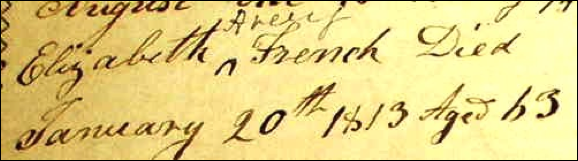 August
Avery
Elizabeth ^ French Died
January 20th 1813 Aged 63